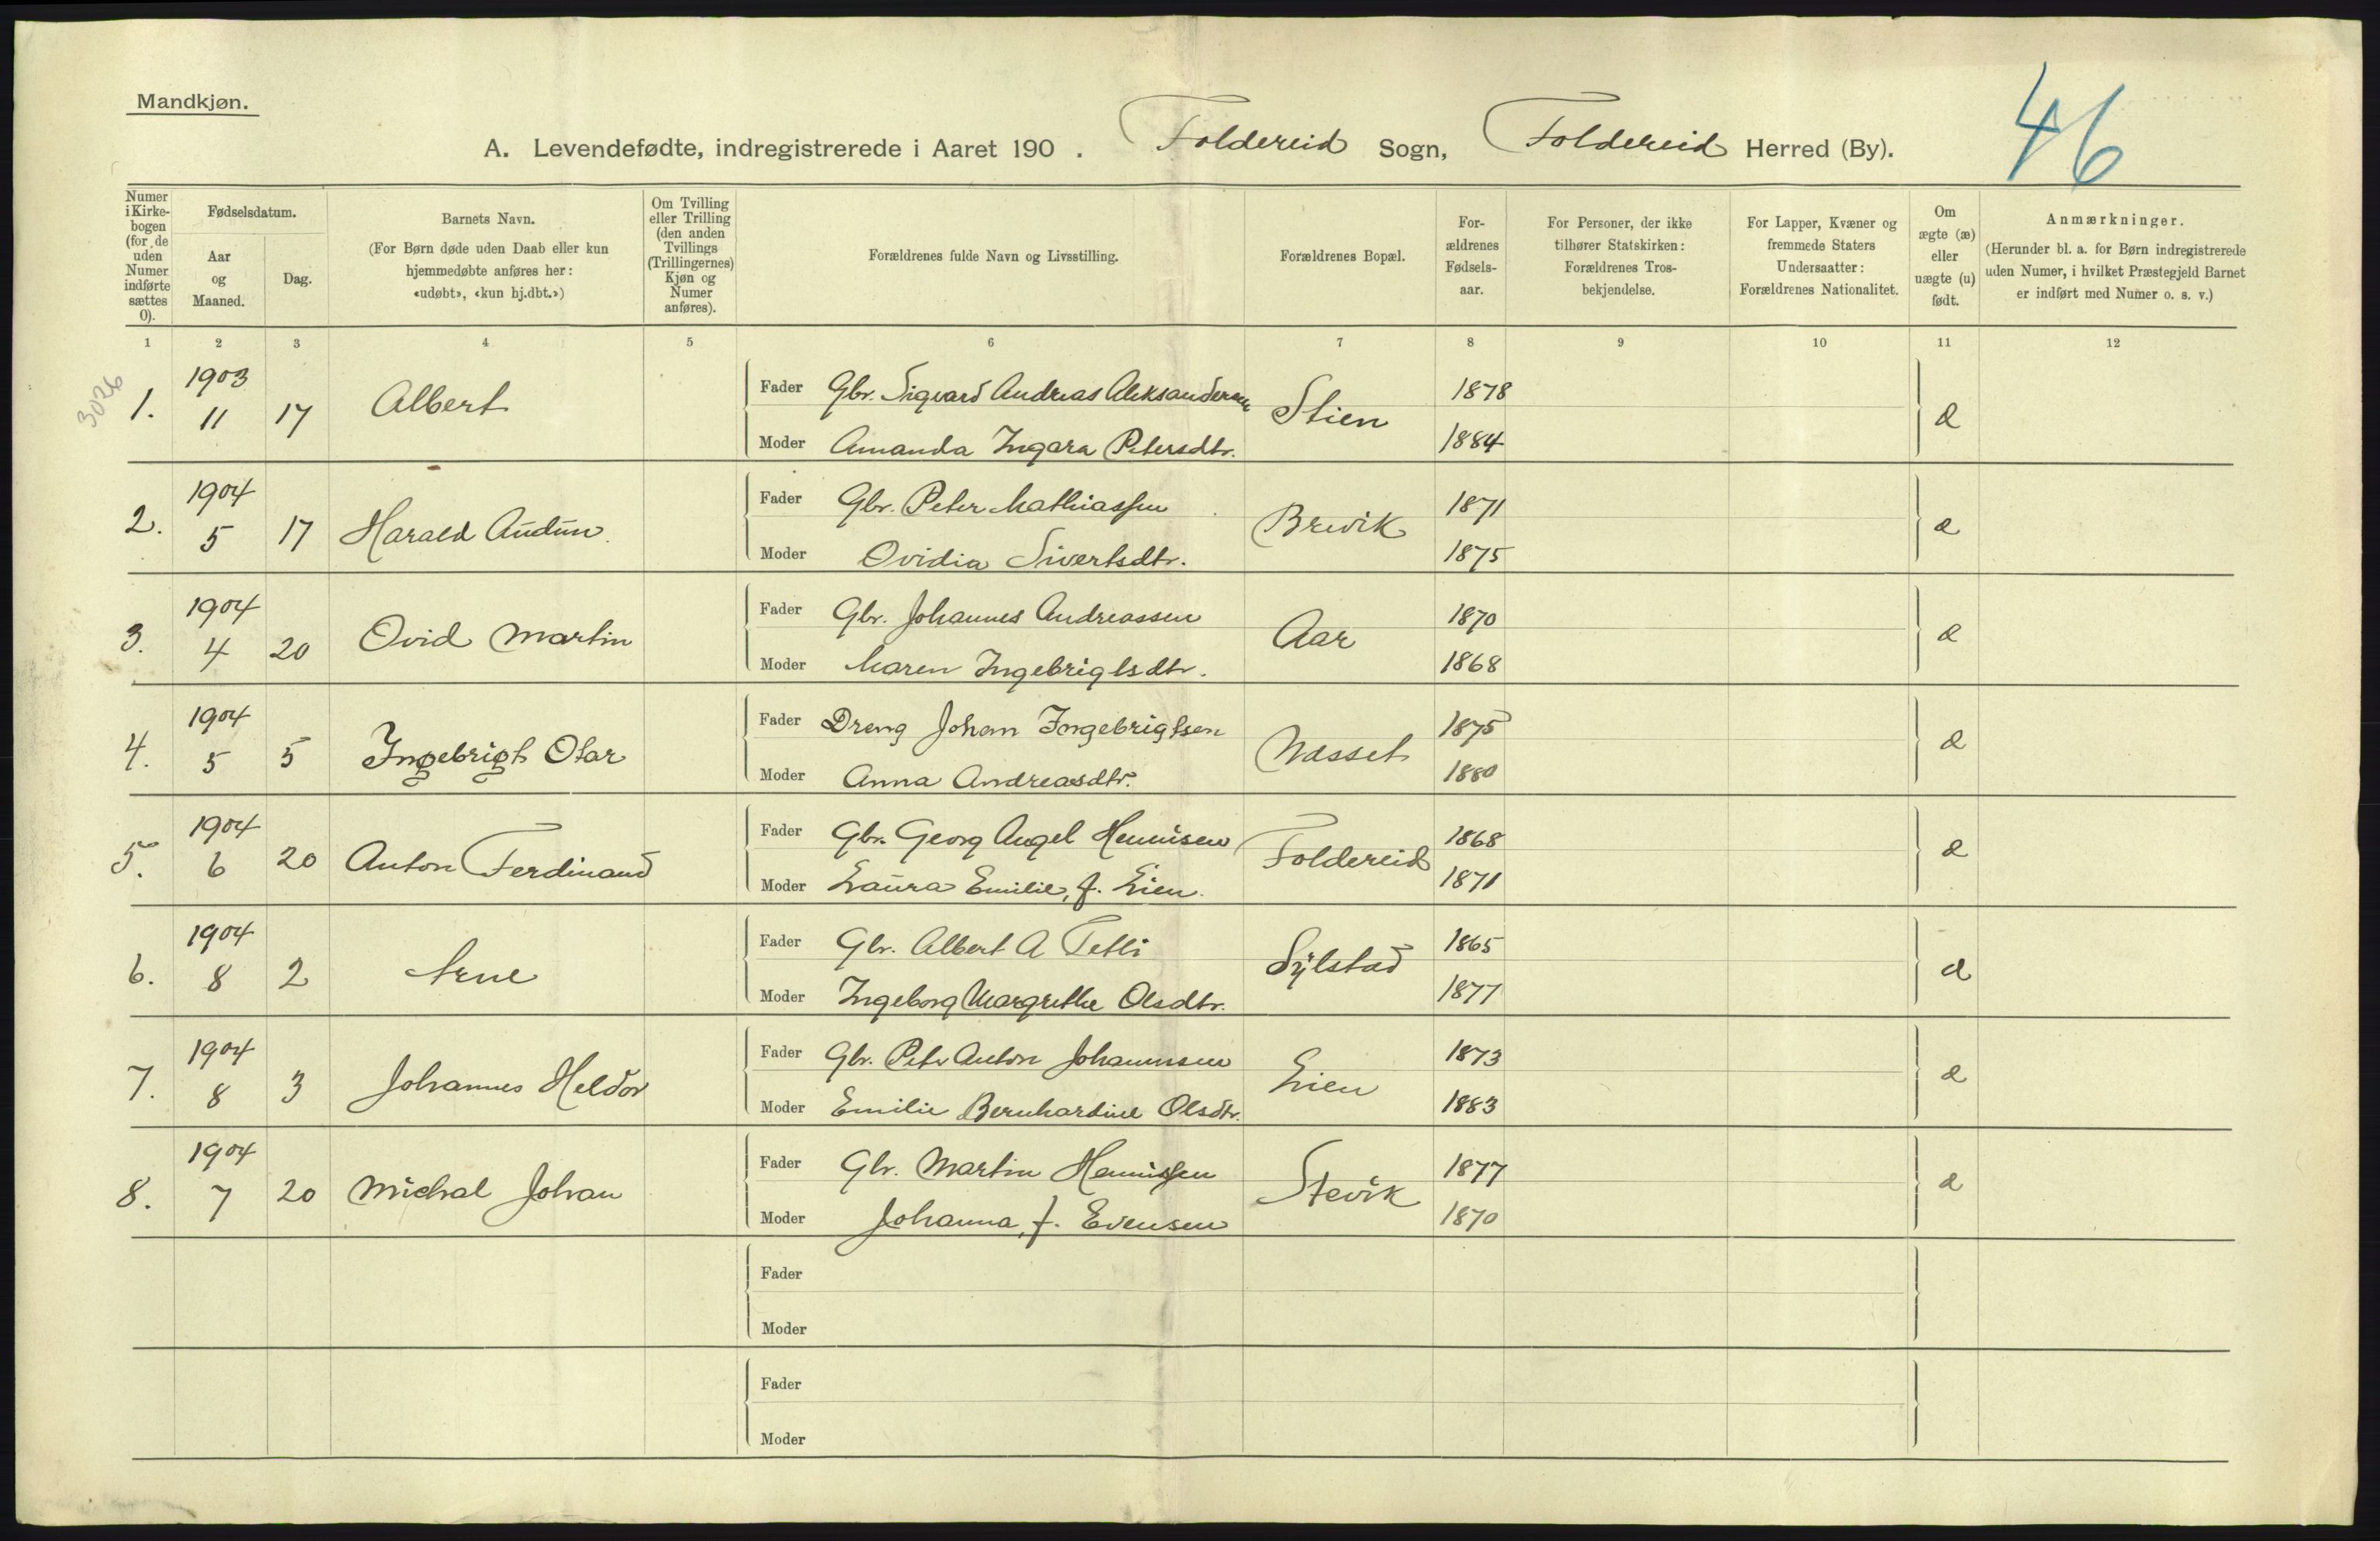 Mandkjøn.
46
A. Levendefødte, indregistrerede i Aaret 190 . Foldereid Sogn, Foldereid Herred (By).
Numer i Kirkebogen (for de uden Numer indførte sættes 0).
Fødselsdatum.
Aar og Maaned.
Dag.
Barnets Navn.
(For Børn døde uden Daab eller kun hjemmedøbte anføres her: «udøbt», «kun hj.dbt.»)
Om Tvilling eller Trilling (den anden Tvillings (Trillingernes) Kjøn og Numer anføres).
Forældrenes fulde Navn og Livsstilling.
Forældrenes Bopæl.
Forældrenes Fødselsaar.
For Personer, der ikke tilhører Statskirken: Forældrenes Trosbekjendelse.
For Lapper, Kvæner og fremmede Staters Undersaatter: Forældrenes Nationalitet.
Om ægte (æ) eller uægte (u) født.
Anmærkninger.
(Herunder bl. a. for Børn indregistrerede uden Numer, i hvilket Præstegjeld Barnet er indført med Numer o. s. v.)
1 2 3 4 5 6 7 8 9 10 11 12
3026
1. 1903 11 17 Albert Fader Gbr. Sigvard Andreas Aleksandersen Stien 1878 æ
Moder Amanda Ingara Petersdtr. 1884
2. 1904 5 17 Harald Audun Fader Gbr. Peter Mathiassen Brevik 1871 æ
Moder Ovidia Sivertsdtr. 1875
3. 1904 4 20 Ovid Martin Fader Gbr. Johannes Andreassen Aar 1870 æ
Moder Maren Ingebrigtsdtr. 1868
4. 1904 5 5 Ingebrigt Otar Fader Dreng Johan Ingebrigtsen Næsset 1875 æ
Moder Anna Andreasdtr. 1880
5. 1904 6 20 Anton Ferdinand Fader Gbr. Georg Angel Hennisen Foldereid 1868 æ
Moder Laura Emilie, f. Lien 1871
6. 1904 8 2 Arne Fader Gbr. Albert A Tetli Sylstad 1865 æ
Moder Ingeborg Margrethe Olsdtr. 1877
7. 1904 8 3 Johannes Heldor Fader Gbr. Peter Anton Johannesen Lien 1873 æ
Moder Emilie Bernhardine Olsdtr. 1883
8. 1904 7 20 Michal Johan Fader Gbr. Martin Hennissen Stevik 1877 æ
Moder Johanna, f. Evensen 1870
Fader
Moder
Fader
Moder